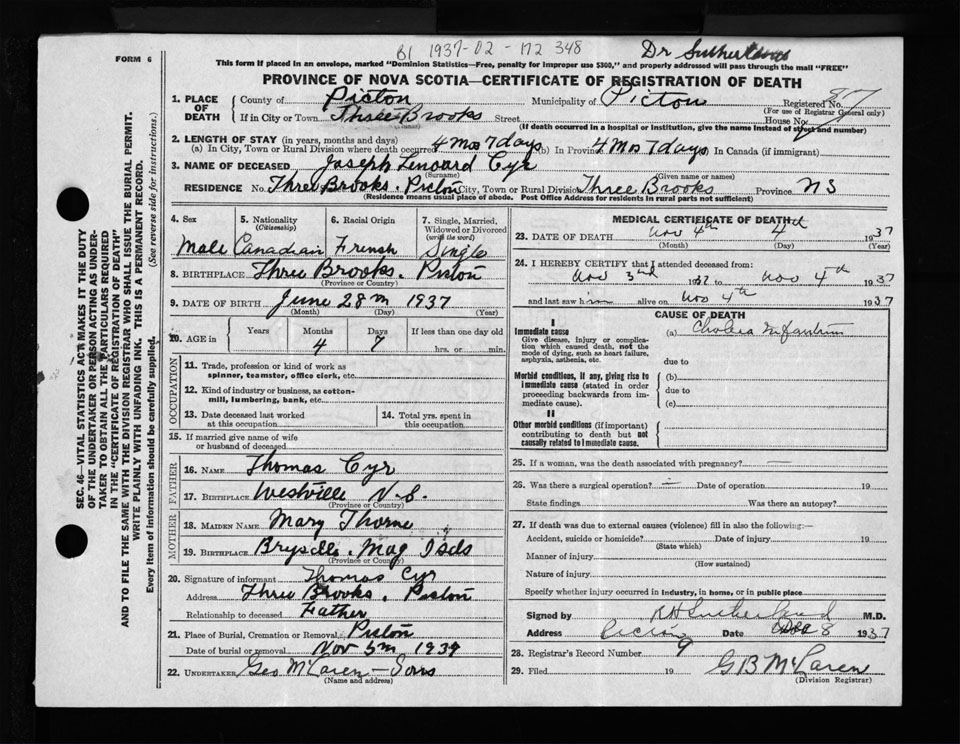 B1 1937-02-172 348
Dr Sutherland
FORM 6
This form if placed in an envelope, marked "Dominion Statistics—Free, penalty for improper use $300," and properly addressed will pass through the mail "FREE"
PROVINCE OF NOVA SCOTIA—CERTIFICATE OF REGISTRATION OF DEATH
1. PLACE OF DEATH County of Pictou Municipality of Pictou Registered No. 87
(For use of Registrar General only)
If in City or Town Three Brooks Street House No.
(If death occurred in a hospital or institution, give the name instead of street and number)
2. LENGTH OF STAY (in years, months and days)
(a) In City, Town or Rural Division where death occurred 4 Mos 7 days (b) In Province 4 Mos 7 days In Canada (if immigrant)
3. NAME OF DECEASED Joseph Lenoard Cyr
(Surname) (Given name or names)
RESIDENCE No. Three Brooks. Pictou City, Town or Rural Division Three Brooks Province NS
(Residence means usual place of abode. Post Office Address for residents in rural parts not sufficient)
4. Sex 5. Nationality (Citizenship) 6. Racial Origin 7. Single, Married, Widowed or Divorced (write the word)
Male Canadian French Single
8. BIRTHPLACE Three Brooks. Pictou
(Province or Country)
9. DATE OF BIRTH June 28th 1937
(Month) (Day) (Year)
10. AGE in Years Months Days If less than one day old
4 7 hrs. or min.
OCCUPATION
11. Trade, profession or kind of work as
spinner, teamster, office clerk, etc.
12. Kind of industry or business, as cotton-
mill, lumbering, bank, etc.
13. Date deceased last worked
at this occupation
14. Total yrs. spent in
this occupation
15. If married give name of wife
or husband of deceased
FATHER
16. NAME Thomas Cyr
17. BIRTHPLACE Westville N.S.
(Province or Country)
MOTHER
18. MAIDEN NAME Mary Thorne
19. BIRTHPLACE Mag Isds
(Province or Country)
20. Signature of informant Thomas Cyr
Address Three Brooks. Pictou
Relationship to deceased Father
21. Place of Burial, Cremation or Removal Pictou
Date of burial or removal Nov 5th 1937
22. UNDERTAKER Geo McLaren—Sons
(Name and address)
MEDICAL CERTIFICATE OF DEATH
23. DATE OF DEATH Nov 4th 4th 1937
(Month) (Day) (Year)
24. I HEREBY CERTIFY that I attended deceased from:
Nov 3rd 1937 to Nov 4th 1937
and last saw him alive on Nov 4th 1937
CAUSE OF DEATH
I
Immediate cause (a) Cholera Infantum
Give disease, injury or complica-
tion which caused death, not the
mode of dying, such as heart failure,
asphyxia, asthenia, etc.
due to
Morbid conditions, if any, giving rise to
immediate cause (stated in order
proceeding backwards from im-
mediate cause).
(b)
due to
(c)
II
Other morbid conditions (if important)
contributing to death but not
causally related to immediate cause.
25. If a woman, was the death associated with pregnancy?
26. Was there a surgical operation? Date of operation 19
State findings Was there an autopsy?
27. If death was due to external causes (violence) fill in also the following:—
Accident, suicide or homicide? Date of injury 19
(State which)
Manner of injury
(How sustained)
Nature of injury
Specify whether injury occurred in industry, in home, or in public place
Signed by R H Sutherland M.D.
Address Pictou Date Dec 8 1937
28. Registrar's Record Number 9
29. Filed 19 G B McLaren
(Division Registrar)
SEC. 46—VITAL STATISTICS ACT MAKES IT THE DUTY
OF THE UNDERTAKER OR PERSON ACTING AS UNDER-
TAKER TO OBTAIN ALL THE PARTICULARS REQUIRED
IN THE "CERTIFICATE OF REGISTRATION OF DEATH"
AND TO FILE THE SAME WITH THE DIVISION REGISTRAR WHO SHALL ISSUE THE BURIAL PERMIT.
WRITE PLAINLY WITH UNFADING INK. THIS IS A PERMANENT RECORD.
Every item of information should be carefully supplied. (See reverse side for instructions.)